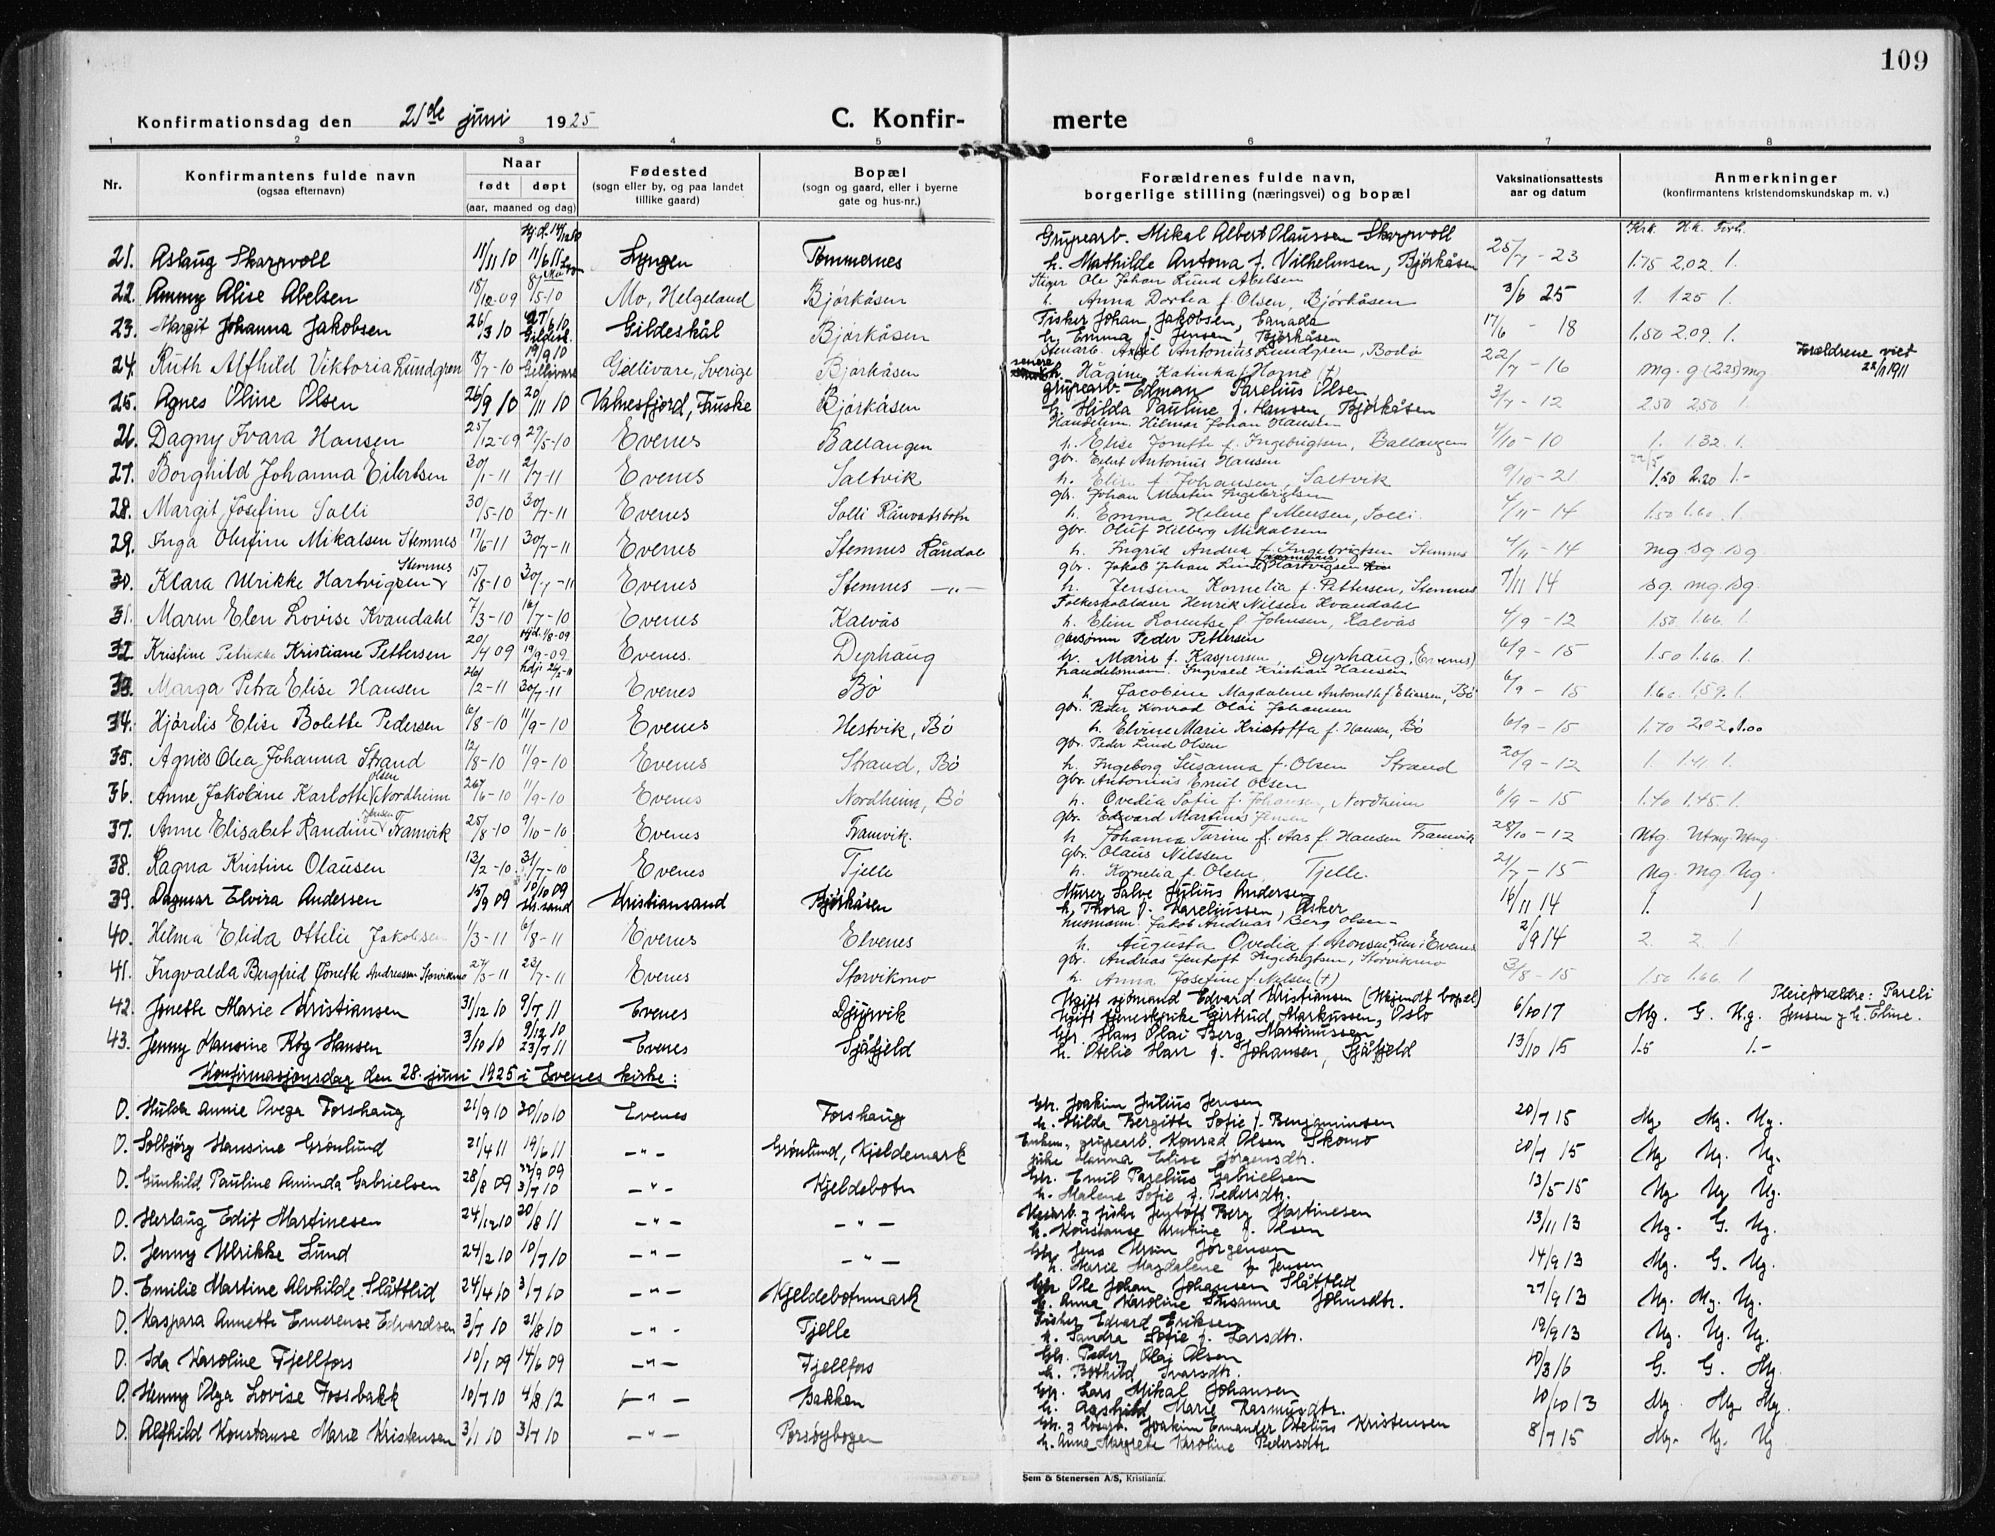 109
Konfirmationsdag den 21de juni 1925 C. Konfir- merte
1 2 3 4 5 6 7 8
Nr. Konfirmantens fulde navn (ogsaa efternavn) Naar født døpt (aar, maaned og dag) Fødested (sogn eller by, og paa landet tillike gaard) Bopæl (sogn og gaard, eller i byerne gate og hus-nr.) Forældrenes fulde navn, borgerlige stilling (næringsvei) og bopæl Vaksinationsattests aar og datum Anmerkninger (konfirmantens kristendomskundskap m. v.)
Grupearb. Mikal Albert Olaussen Skarpvoll
21. Aslaug Skarpvoll 11/11 10 11/6 11 Lyngen Tømmernes h. Mathilde Antona f. Vilhelmsen, Bjørkåsen 25/7 - 23 1.75 2.02 1.
Stiger Ole Johan Lund Abelsen
22. Ammy Alise Abelsen 18/12-09 8/5-10 Mo, Helgeland Bjørkåsen h. Anna Dortea f. Olsen, Bjørkåsen 3/6 25 1. 1.25 1.
Fisker Johan Jakobsen, Canada
23. Margit Johanna Jakobsen 26/3 10 27/6 10 Gildeskål Bjørkåsen h. Emma f. Jensen, Bjørkåsen 17/6 - 18 1.50 2.09 1.
Stenarb. Axel Antonius Lundgren, Bodø
24. Ruth Alfhild Viktoria Lundgren 18/7-10 19/9 10 Gellivare Gellivare, Sverige Bjørkåsen Hagine Katinka f. Horne (+) 22/7 - 16 mg. g (2.25) mg Forældrene viet 22/1 1911
grupearb. Edman Parelius Olsen
25. Agnes Oline Olsen 26/9 10 20/11 10 Valnesfjord, Fauske Bjørkåsen h. Hilda Pauline f. Hansen, Bjørkåsen 3/7 - 12 2.50 2.50 1.
Handelsm. Hilmar Johan Hansen
26. Dagny Ivara Hansen 25/12-09 29/5-10 Evenes Ballangen h. Elise Jonette f. Ingebrigtsen, Ballangen 4/10 - 10 1. 1.32. 1.
gbr. Eilert Antonius Hansen
27. Borghild Johanna Eilertsen 30/1-11 2/7-11 Evenes Saltvik h. Elise f. Johansen, Saltvik 9/10 - 21 1.50 2.20 1.-
gbr. Johan Martin Ingebrigtsen
28. Margit Josefine Solli 30/5-10 30/7-11 Evenes Solli Rånvatsbotn h. Emma Helene f. Mensen, Solli. 4/11 - 14 1.50 1.60. 1.
gbr. Oluf Hilberg Mikalsen
29. Inga Olufine Mikalsen Stemnes 17/6-11 30/7-11 Evenes Stemnes Råndal h. Ingrid Andrea f. Ingebrigtsen Stemnes 4/11 - 14 mg sg. sg
gbr. Jakob Johan Lind Hartvigsen
30. Klara Ulrikke Hartvigsen Stemnes 15/8-10 30/7-11 Evenes Stemnes -"- h. Jensine Kornelia f. Pettersen, Stemnes 7/11 14 sg. mg. sg
Folkeskolelærer Henrik Nilsen Kvandahl
31. Maren Elen Lovise Kvandahl 7/3-10 16/7-10 Evenes Kalvås h. Eline Lorentse f. Johnsen, Kalvås 4/9 - 12 1.50. 1.66. 1.
gårsønn Peder Pettersen
32. Kristine Petrikke Kristiane Pettersen 20/4 09 hjd. 1/8-09 19/9-09. Evenes. Dyrhaug h. Marie f. Kaspersen Dyrhaug, (Evenes) 6/9 - 15 1.50 1.66. 1.
handelsmann. Ingvald Kristian Hansen
33. Marga Petra Elise Hansen 26/2-11 30/7-11 Evenes Bø h. Jacobine Magdalene Antonette f. Eliassen, Bø 6/9 - 15 1.60. 1.59. 1.
gbr. Peder Konrad Olai Johansen
34. Hjørdis Elise Bolette Pedersen 6/8-10 11/9-10 Evenes Hestvik, Bø h. Elvine Marie Kristoffa f. Hansen, Bø 6/9 - 15 1.70 2.02. 1.00
gbr. Peder Lind Olsen
35. Agnes Olea Johanna Strand 12/8-10 11/9-10 Evenes Strand, Bø h. Ingeborg Susanna f. Olsen Strand 20/9 - 12 1. 1.41. 1.
gbr. Antonius Emil Olsen
36. Anne Jakobine Karlotte Olsen Nordheim 26/6-10 11/9-10 Evenes Nordheim, Bø h. Ovedia Sofie f. Johansen, Nordheim 6/9 - 15 1.40 1.45 1.
gbr. Edvard Martinus Jensen
37. Anne Elisabet Randine Jensen Framvik 25/8-10 9/10-10 Evenes Framvik. h. Johanna Turine f. Aas f. Hansen Framvik 28/10 - 12 Mtg. Mtmg. Mtmg.
gbr. Olaus Nilssen
38. Ragna Kristine Olausen 13/2-10 31/7-10 Evenes Tjelle h. Kornelia f. Olsen, Tjelle. 21/7 - 15 Mg. mg. Mg.
Murer Salve Julius Andersen
39. Dagmar Elvira Andersen 15/9 09 10/10 09 Kr.sand Kristiansand Bjørkåsen h. Thora f. Kareliussen, Asker 16/11 14 1. 1
Husmann, Jakob Andreas Berg Olsen
40. Helma Elida Ottelie Jakobsen 1/3-11 6/8-11 Evenes Elvenes h. Augusta Ovedia f. Aronsen Lien i Evenes 2/9 14 2. 2. 1
gbr. Andreas Jentoft Ingebrigtsen, Storvikmo
41. Ingvalda Bergfrid Jonette Andreassen Storvikmo 27/3-11 23/7-11 Evenes Storvikmo h. Anna Josefine f. Nilsen (+) 3/8 - 15 1.50 1.66. 1
Ugift sjømand Edvard Kristiansen (Ukjendt bopæl)
42. Jonette Marie Kristiansen 31/12 10 9/7 11 Evenes Djupvik Ugift tjenestpike Gjertrud Markussen, Oslo 6/10 17 Mg. G. Mg. Pleieforældre: Pareli Jensen og h. Eline.
Gbr. Hans Olai Berg Martinussen
43. Jenny Hansine Kbg Hansen 3/10 10 9/12 10 23/7 11 Evenes Sjåfjeld h. Otelie Harr f. Johansen, Sjåfjeld 13/10 15 1.5 1.-
Konfirmasjonsdag den 28. juni 1925 i Evenes kirke:
Gbr. Joakim Julius Jensen
D. Hulda Annie Ovega Forshaug 21/9 10 30/10 10 Evenes Forshaug h. Hilda Bergitte Sofie f. Benjaminsen 20/7 15 Mg. Mg. Mg.
Enkem. grupearb. Konrad Olsen Skomo
D. Solbjørg Hansine Grønlund 21/4 11 19/6 11 -"- Grønlund, Kjeldemark pike Hanna Elise Jørgensdtr. 20/7 15 Mg Mg. Mg.
Gbr. Emil Parelius Gabrielsen
D. Gunhild Pauline Aminda Gabrielsen 28/8 09 22/9 09 3/7 10 -"- Kjeldebotn h. Malene Sofie f. Pedersdtr. 13/5-15 Mg Mg Mg.
og fisker Jentoft Berg Martinesen
D. Herlaug Edif Martinesen 24/12 10 20/8 11 -"- -"- h. Konstanse Arntine f. Olsen 13/11 13 Mg. G. Mg.
Gbr. Jens Ursin Jørgensen
D. Jenny Ulrikke Lund 24/2 10 10/7 10 -"- -"- h. Marie Magdalene f. Jensen 14/9 13 Mg. G. Mg.
Gbr. Ole Johan Johansen Slåttlid
D. Emilie Martine Alvhilde Slåttlid 24/4 10 3/7 10 -"- Kjeldebotnmark h. Anna Karoline Susanna Johnsdtr. 27/9 13 Mg. Mg. Mg.
Fisker Edvard Eriksen
D. Kaspara Annette Emerense Edvardsen 3/7 10 21/8 10 -"- Tjelle h. Sandra Sofie f. Larsdtr. 19/9 13 Mg. Mg. Mg.
Gbr. Peder Olai Olsen
D. Ida Karoline Fjellfors 10/1 09 14/6 09 -"- Fjellfors h. Bothild Ivarsdtr. 20/3 16 G. G. Mg.
Gbr. Lars Mikal Johansen
D. Henny Olga Lovise Fossbakk 10/7 10 4/8 12 -"- Bakken h. Aashild Marie Rasmusdtr. 10/10 13 Mg. Mg Mg.
Gbr. og losarb. Joakim Ernander Otelius Kristensen
D. Alfhild Konstanse Marie Kristensen 3/1 10 3/7 10 -"- Porsøybogen h. Anna Margrete Karoline Pedersdtr 8/7 15 Mg. Mg. Mg
Sem & Stenersen A/S, Kristiania.